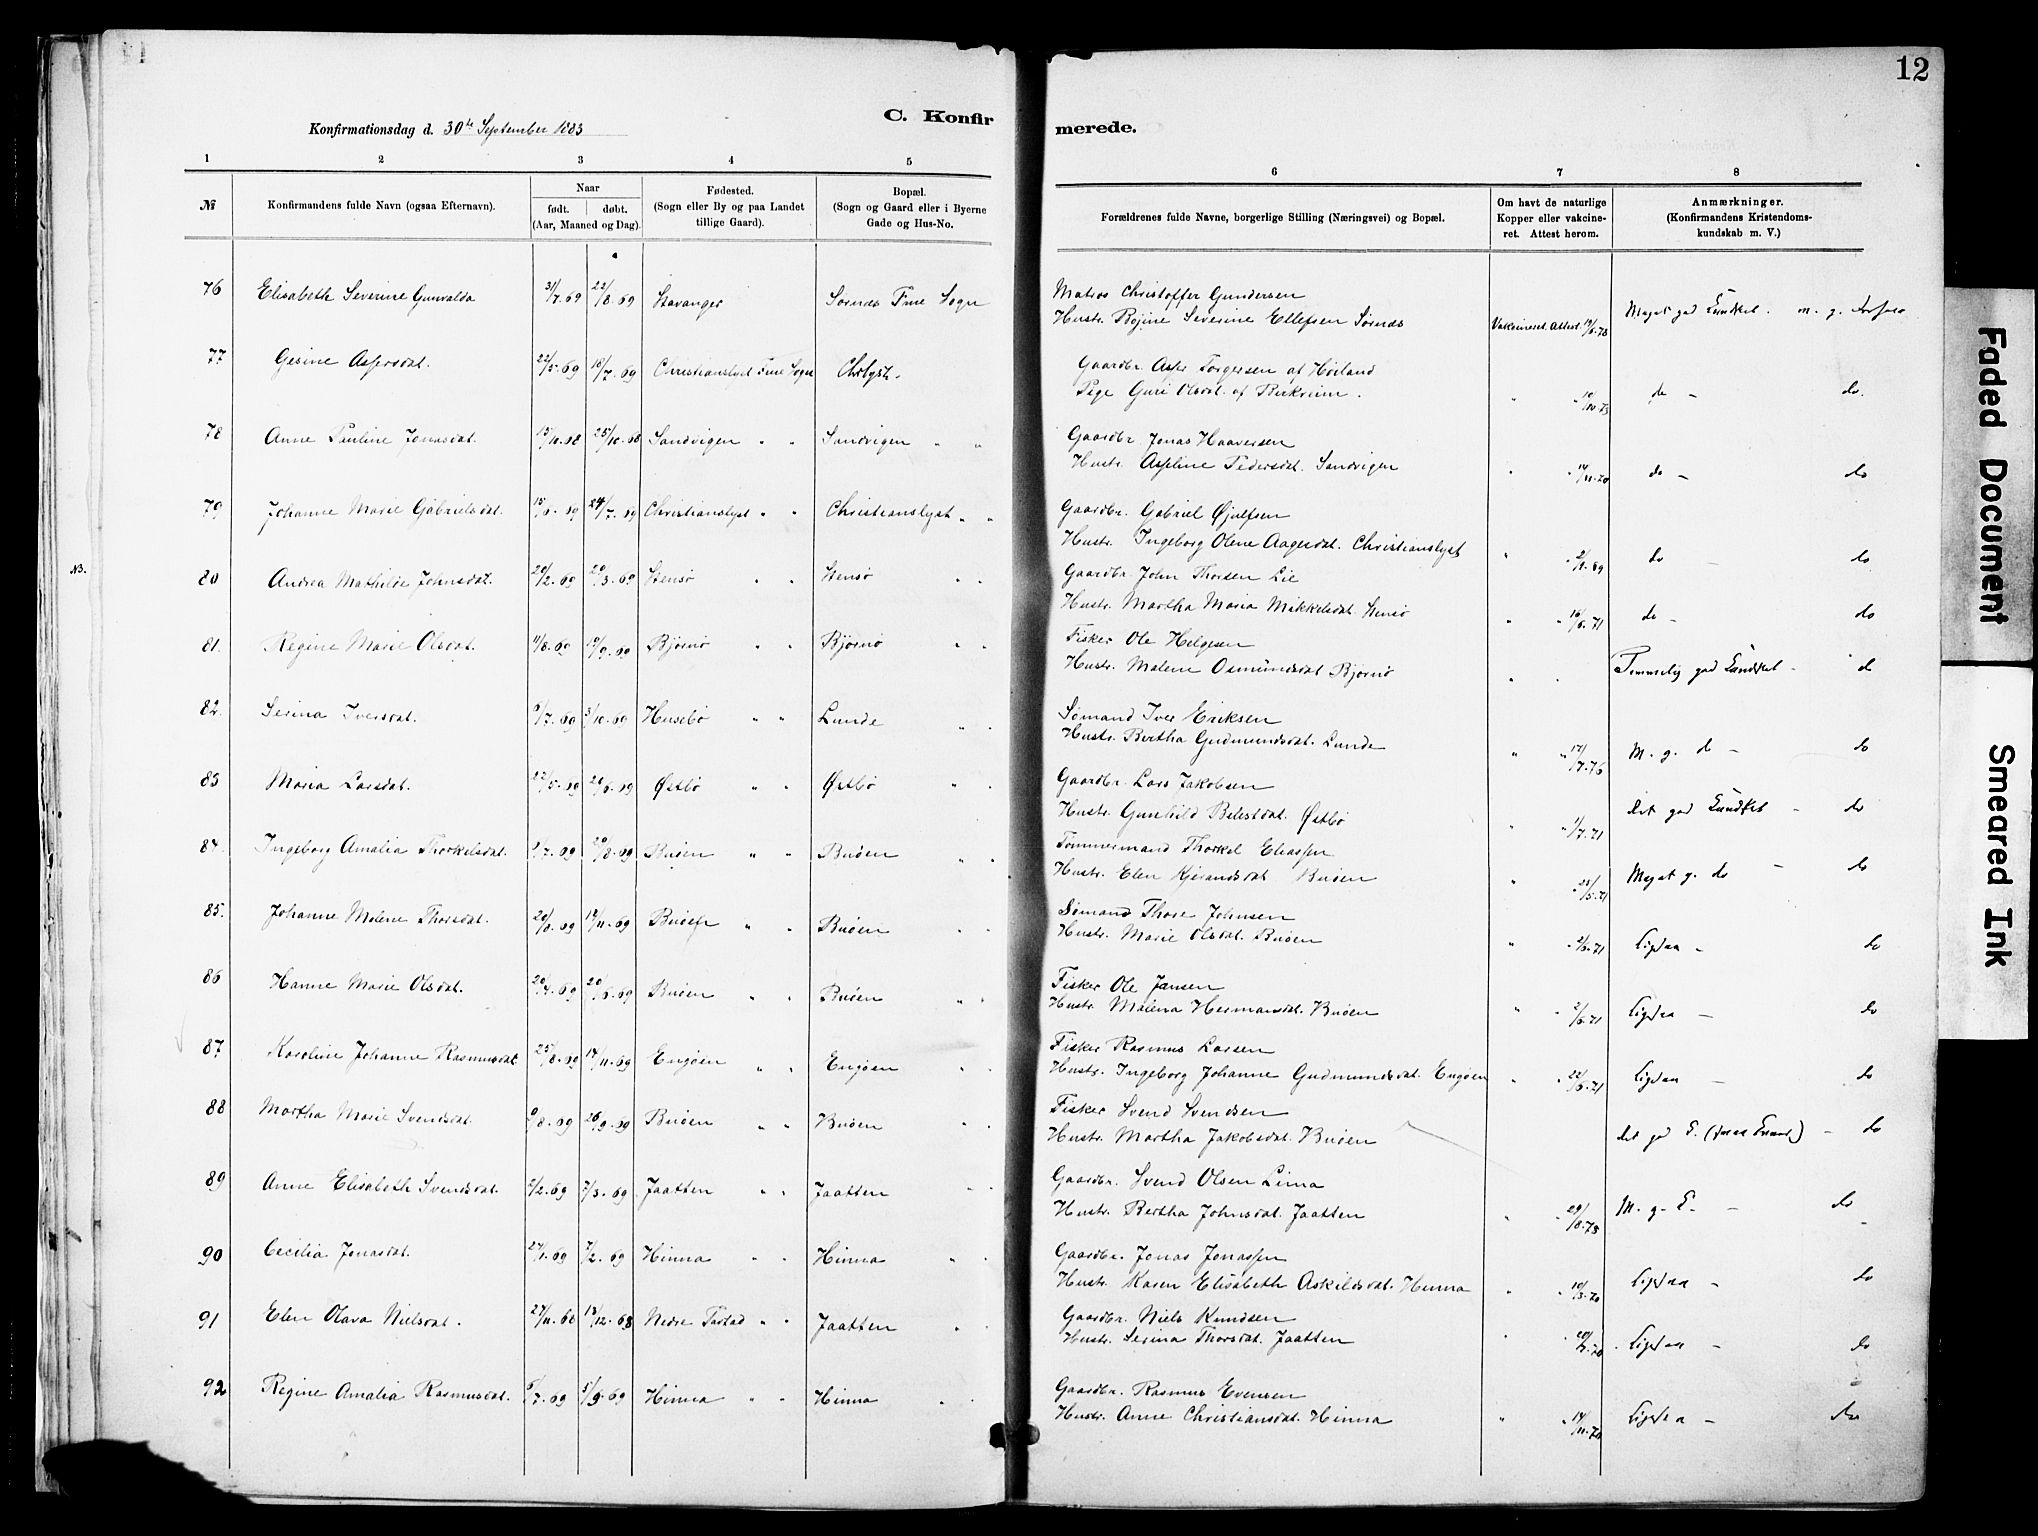 12
Konfirmationsdag d. 30te September 1883
C. Konfirmerede.
1 2 3 4 5 6 7 8
№
Konfirmandens fulde Navn (ogsaa Efternavn).
Naar
født. døbt.
(Aar, Maaned og Dag).
Fødested.
(Sogn eller By og paa Landet
tillige Gaard).
Bopæl.
(Sogn og Gaard eller i Byerne
Gade og Hus-No.
Forældrenes fulde Navne, borgerlige Stilling (Næringsvei) og Bopæl.
Om havt de naturlige
Kopper eller vakcine-
ret. Attest herom.
Anmærkninger.
(Konfirmandens Kristendoms-
kundskab m. V.)
76 Elisabeth Severine Gunvalda 31/7.69 22/8.69 Stavanger Sørnes Frue Sogn
Matros Christoffer Gundersen
Hustr. Severine Ellefsen Sørnes Vakcineret Attest Meget god Kundskab. m. g.
77 Gesine Aspersdat. 22/5.69 18/7.69 Christianslyst Frue Sogn Chrlyst.
Gaardbr. Torgersen af Høiland
Pige Guri Olsdat. af Berkreim. do - do.
78 Anne Pauline Jonasdat. 25/10.68 Sandvigen " " Sandvigen " "
Gaardbr. Jonas Haaversen
Hustr. Aspeline Pedersdat. Sandvigen " " 14/11.70 do - do
79 Johanne Marie Gabrielsdat. 24/7.69 Christianslyst " " Christianslyst " "
Gaardbr. Gabriel Øjulfsen
Hustr. Ingeborg Olene Aagesdat. Christianslyst do - do
NB.
80 Andrea Mathilde Johnsdat. Stensø " " Stensø " "
Gaardbr. John Thorsen Lie
Hustr. Martha Maria Mikkelsdat. Stensø do - do
81. Regine Marie Olsdat. 11/8.69 19/9.69 Bjørnø " " Bjørnø " "
Fisker Ole Helgesen
Hustr. Malene Osmundsdat Bjørnø " " Temmelig god Kundskab - do
82. Serina Iversdat. 3/10.69 Husebø " " Lunde " "
Sømand Iver Eriksen
Hustr. Bertha Gudmundsdat. Lunde " " 17/7.76 M. g. do - do
83 Maria Larsdat. 22/5.69 20/6.69 Østbø " " Østbø " "
Gaardbr. Lars Jakobsen
Hustr. Gunhild Østbø " " 1/7.71 det god Kundskab - do
84. Ingeborg Amalia Thorkelsdat. Buøen " " Buøen " "
Tømmermand Thorkel Eliassen
Hustr. Elen Kjerandsdat Buøen Meget g. do - do
85. Johanne Malene Thorsdat. 14/11.69 Buøen " " Buøen " "
Sømand Thore Johnsen
Hustr. Marie Olsdat. Buøen Ligesaa - do
86 Hanne Marie Olsdat. 20/4.69 20/6.69 Buøen " " Buøen " "
Fisker Ole Jansen
Hustr. Malena Hermansdat. Buøen Ligesaa - do
87. Karoline Johanne Rasmusdat 25/8.69 14/11.69 Engøen " " Engøen " "
Fisker Rasmus Larsen
Hustr. Ingeborg Johanne Gudmundsdat. Engøen Ligesaa - do
88 Martha Marie Svendsdat. 26/9.69 Buøen " " Buøen " "
Fisker Svend Svendsen
Hustr. Martha Jakobsdat. Buøen det god K. - do
89 Anne Elisabeth Svendsdat. 7/3.69 Jaatten " " Jaatten " "
Gaardbr. Svend Olsen Lima
Hustr. Bertha Johnsdat. Jaatten M. g. K. - do
90 Cecilia Jonasdat. 27/1.69 7/2.69 Hinna " " Hinna " "
Gaardbr. Jonas Jonassen
Hustr. Karen Elisabeth Askildsdat. Hinna Ligesaa - do
91 Elen Olava Nielsdat. 27/11.68 13/12.68 Nedre Tastad " " Jaatten " "
Gaardbr. Niels Knudsen
Hustr. Serina Thorsdat. Jaatten Ligesaa - do
92 Regine Amalia Rasmusdat. 5/9.69 Hinna " " Hinna " "
Gaardbr. Rasmus Evensen
Hustr. Anne Christiansdat. Hinna " " 14/11.70 Ligesaa - do
Faded Document
Smeared Ink